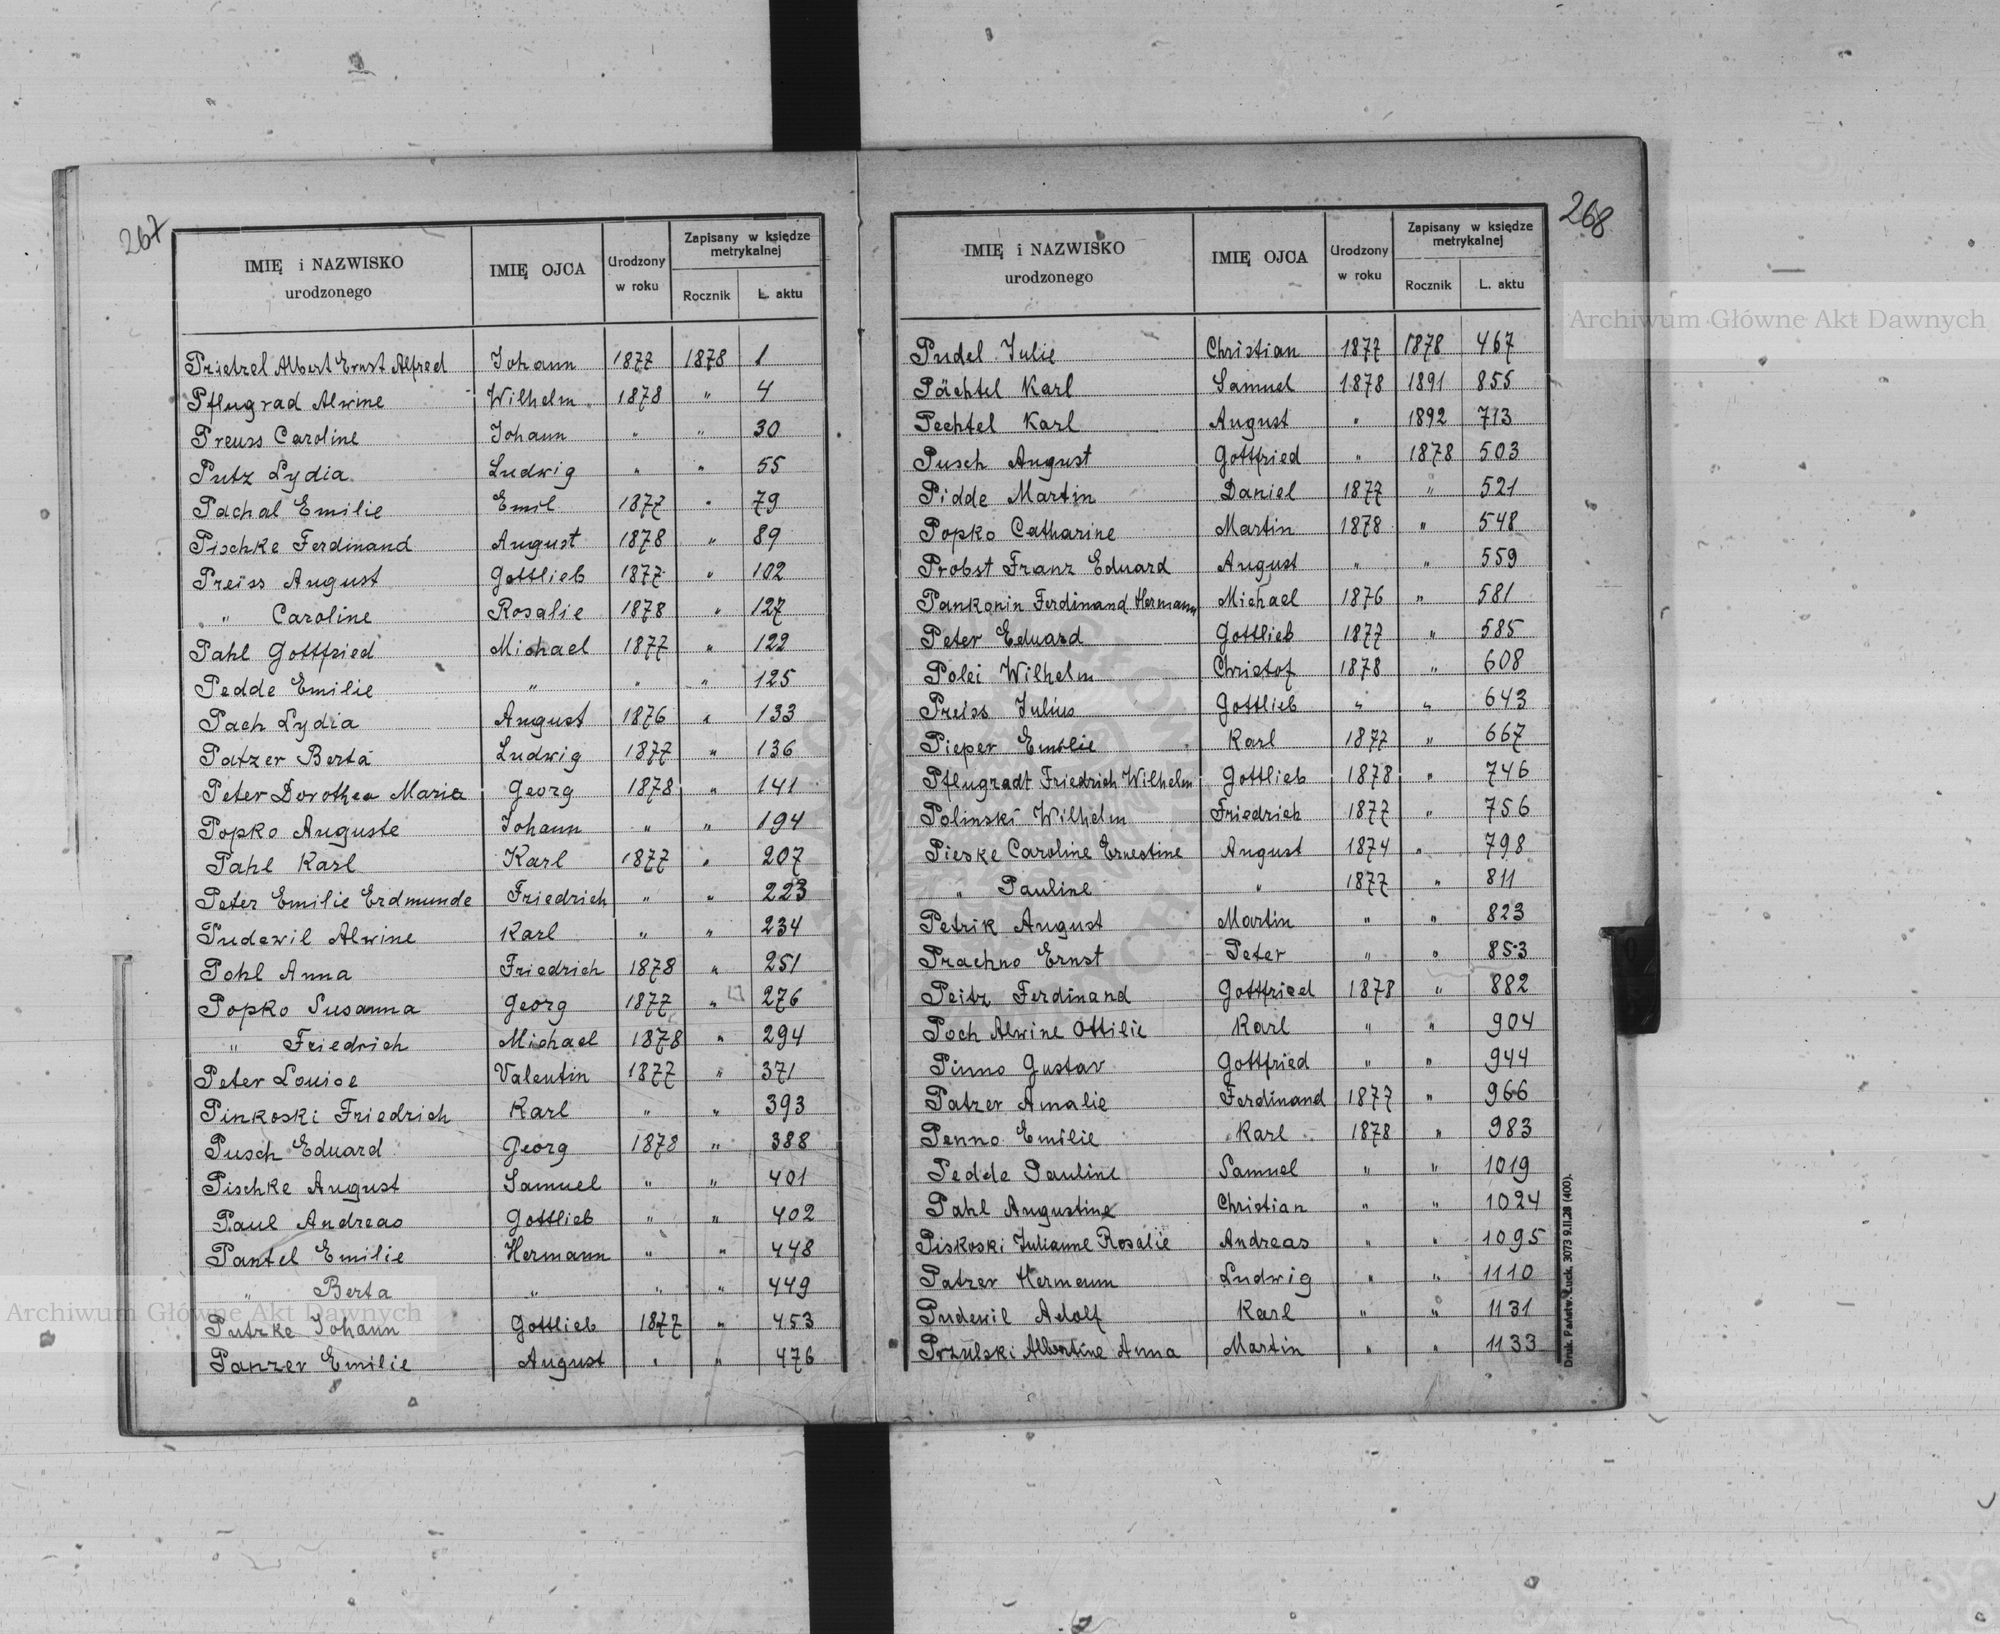 267
IMIĘ i NAZWISKO urodzonego IMIĘ OJCA Urodzony w roku Zapisany w księdze metrykalnej Rocznik L. aktu
Prietzel Albert Ernst Alfred Johann 1877 1878 1
Pflugrad Alwine Wilhelm 1878 " 4
Preuss Caroline Johann " " 30
Putz Lydia Ludwig " " 55
Pachal Emilie Emil 1877 " 79
Pischke Ferdinand August 1878 " 89
Preiss August Gottlieb 1877 " 102
" Caroline Rosalie 1878 " 127
Pahl Gottfried Michael 1877 " 122
Pedde Emilie " " " 125
Pach Lydia August 1876 " 133
Patzer Berta Ludwig 1877 " 136
Peter Dorothea Maria Georg 1878 " 141
Popko Auguste Johann " " 194
Pahl Karl Karl 1877 " 207
Peter Emilie Erdmunde Friedrich " " 223
Pudewil Alwine Karl " " 234
Pohl Anna Friedrich 1878 " 251
Popko Susanna Georg 1877 " 276
" Friedrich Michael 1878 " 294
Peter Louise Valentin 1877 " 371
Pinkoski Friedrich Karl " " 393
Pusch Eduard Georg 1878 " 388
Pischke August Samuel " " 401
Paul Andreas Gottlieb " " 402
Pantel Emilie Hermann " " 448
" Berta " " " 449
Putzke Johann Gottlieb 1877 " 453
Panzer Emilie August " " 476
268
IMIĘ i NAZWISKO urodzonego IMIĘ OJCA Urodzony w roku Zapisany w księdze metrykalnej Rocznik L. aktu
Pudel Julie Christian 1877 1878 467
Pächtel Karl Samuel 1878 1891 855
Pechtel Karl August " 1892 713
Pusch August Gottfried " 1878 503
Pidde Martin Daniel 1877 " 521
Popko Catharine Martin 1878 " 548
Probst Franz Eduard August " " 559
Pankonin Ferdinand Hermann Michael 1876 " 581
Peter Eduard Gottlieb 1877 " 585
Polei Wilhelm Christof 1878 " 608
Preiss Julius Gottlieb " " 643
Pieper Emilie Karl 1877 " 667
Pflugradt Friedrich Wilhelm Gottlieb 1878 " 746
Polinski Wilhelm Friedrich 1877 " 756
Pieske Caroline Ernestine August 1874 " 798
" Pauline " 1877 " 811
Petrik August Martin " " 823
Prachno Ernst Peter " " 853
Peitz Ferdinand Gottfried 1878 " 882
Poch Alwine Ottilie Karl " " 904
Pinno Gustav Gottfried " " 944
Patzer Amalie Ferdinand 1877 " 966
Penno Emilie Karl 1878 " 983
Pedde Pauline Samuel " " 1019
Pahl Augustine Christian " " 1024
Piskoski Julianne Rosalie Andreas " " 1095
Patzer Hermann Ludwig " " 1110
Pudewil Adolf Karl " " 1131
Przulski Albertine Anna Martin " " 1133
Druk. Państw. Łuck. 3073 9.II.28 (400).
Archiwum Główne Akt Dawnych
Archiwum Główne Akt Dawnych